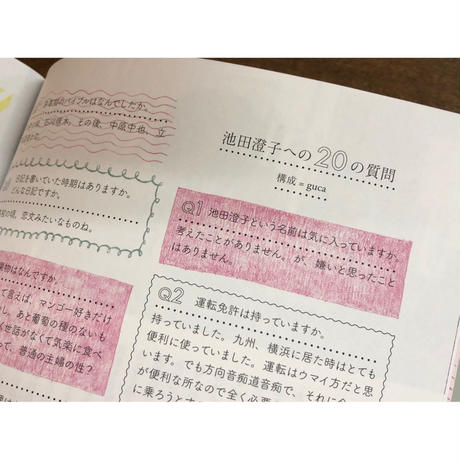 池田澄子への20の質問
構成=guca
Q1 池田澄子という名前は気に入っていますか。
考えたことがありません。が、嫌いと思ったこと
はありません。
Q2 運転免許は持っていますか。
持っていました。九州、横浜に居た時はとても
便利に使っていました。運転はウマイ方だと思
います。でも方向音痴道音痴で、それに
が便利な所なので全く必要
に乗ろうとす
バイブルはなんでしたか。
石川啄木、その後、中原中也、立
日記を書いていた時期はありますか。
どんな日記ですか。
の頃、恋文みたいなものね。
物はなんですか。
て言えば、マンゴー好きだけ
し、あと葡萄の種のないも
く世話がなくて気楽に食べ
って、普通の主婦の性？